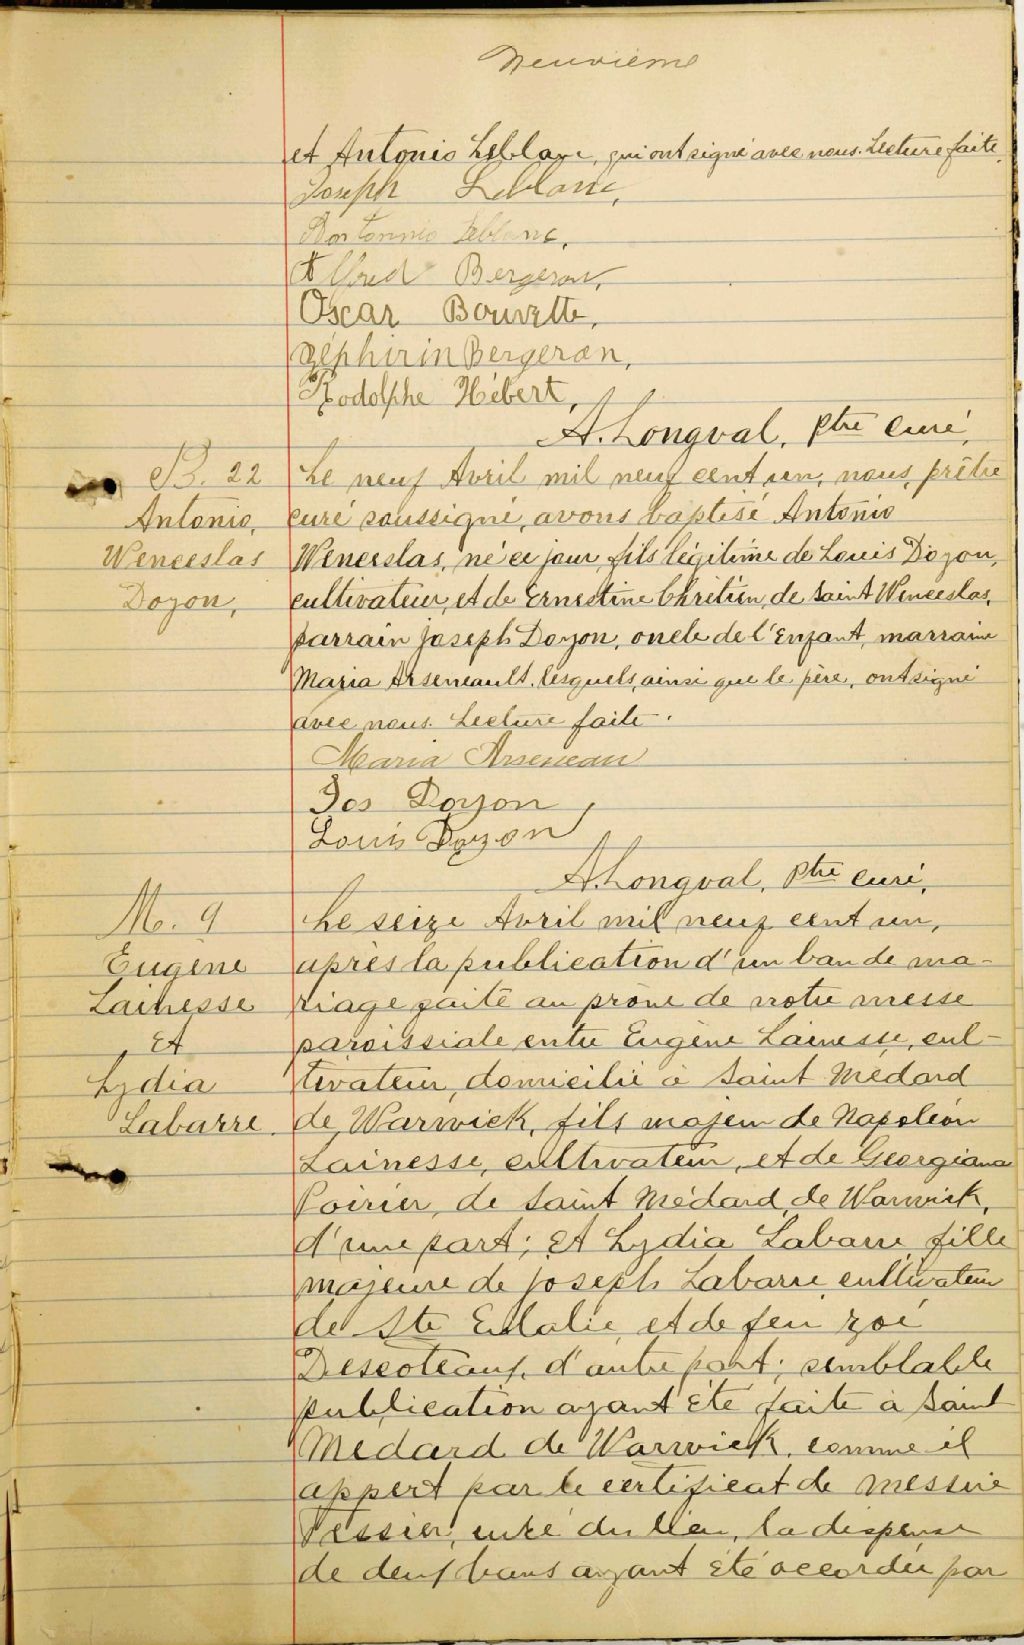 Neuvième
et Antonio Leblanc, qui ont signé avec nous. Lecture faite.
Joseph Leblanc,
Antonnio Leblanc,
Alfred Bergeron,
Oscar Bouvette,
Zéphirin Bergeron,
Rodolphe Hébert,
A. Longval, Ptre curé,
B. 22
Antonio,
Wenceslas
Doyon,
Le neuf Avril mil neuf cent un, nous, prêtre
curé soussigné, avons baptisé Antonio
Wenceslas, né ce jour, fils légitime de Louis Doyon,
cultivateur, et de Ernestine Chrétien, de Saint Wenceslas,
parrain Joseph Doyon, oncle de l'Enfant, marraine
Maria Arseneault, lesquels, ainsi que le père, ont signé
avec nous. Lecture faite.
Maria Arseneau
Jos Doyon,
Louis Doyon
A. Longval, Ptre curé,
M. 9
Eugène
Lainesse
Et
Lydia
Labarre.
Le seize Avril mil neuf cent un,
après la publication d'un ban de ma-
riage faite au prône de notre messe
paroissiale entre Eugène Lainesse, cul-
tivateur, domicilié à Saint Médard
de Warwick, fils majeur de Napoléon
Lainesse, cultivateur, et de Georgiana
Poirier, de Saint Médard de Warwick,
d'une part; et Lydia Labarre, fille
majeure de Joseph Labarre, cultivateur
de Ste Eulalie, et de feu Zoé
Descoteaux, d'autre part; semblable
publication ayant été faite à Saint
Médard de Warwick, comme il
appert par le certificat de messire
Tessier, curé du lieu, la dispense
de deux bans ayant été accordée par